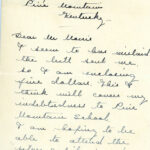 Pine Mountain
Kentucky
Dear Mr Morris
I seem to have mislaid
the bill sent me,
so I am enclosing
five dollars. This I
think will cover my
indebtedness to Pine
Mountain School
I am hoping to be
able to attend the